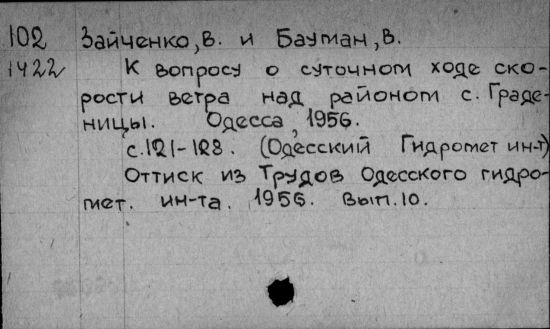 102 Зайченко, В. и Бауман, В.
1422 К вопросу о суточном ходе ско-
рости ветра над районом с. Граде-
ницы. Одесса, 1956.
с. 121-128. (Одесский Гидромет ин-т)
Оттиск из Трудов Одесского гидро-
мет. ин-та. 1956. Вып. 10.